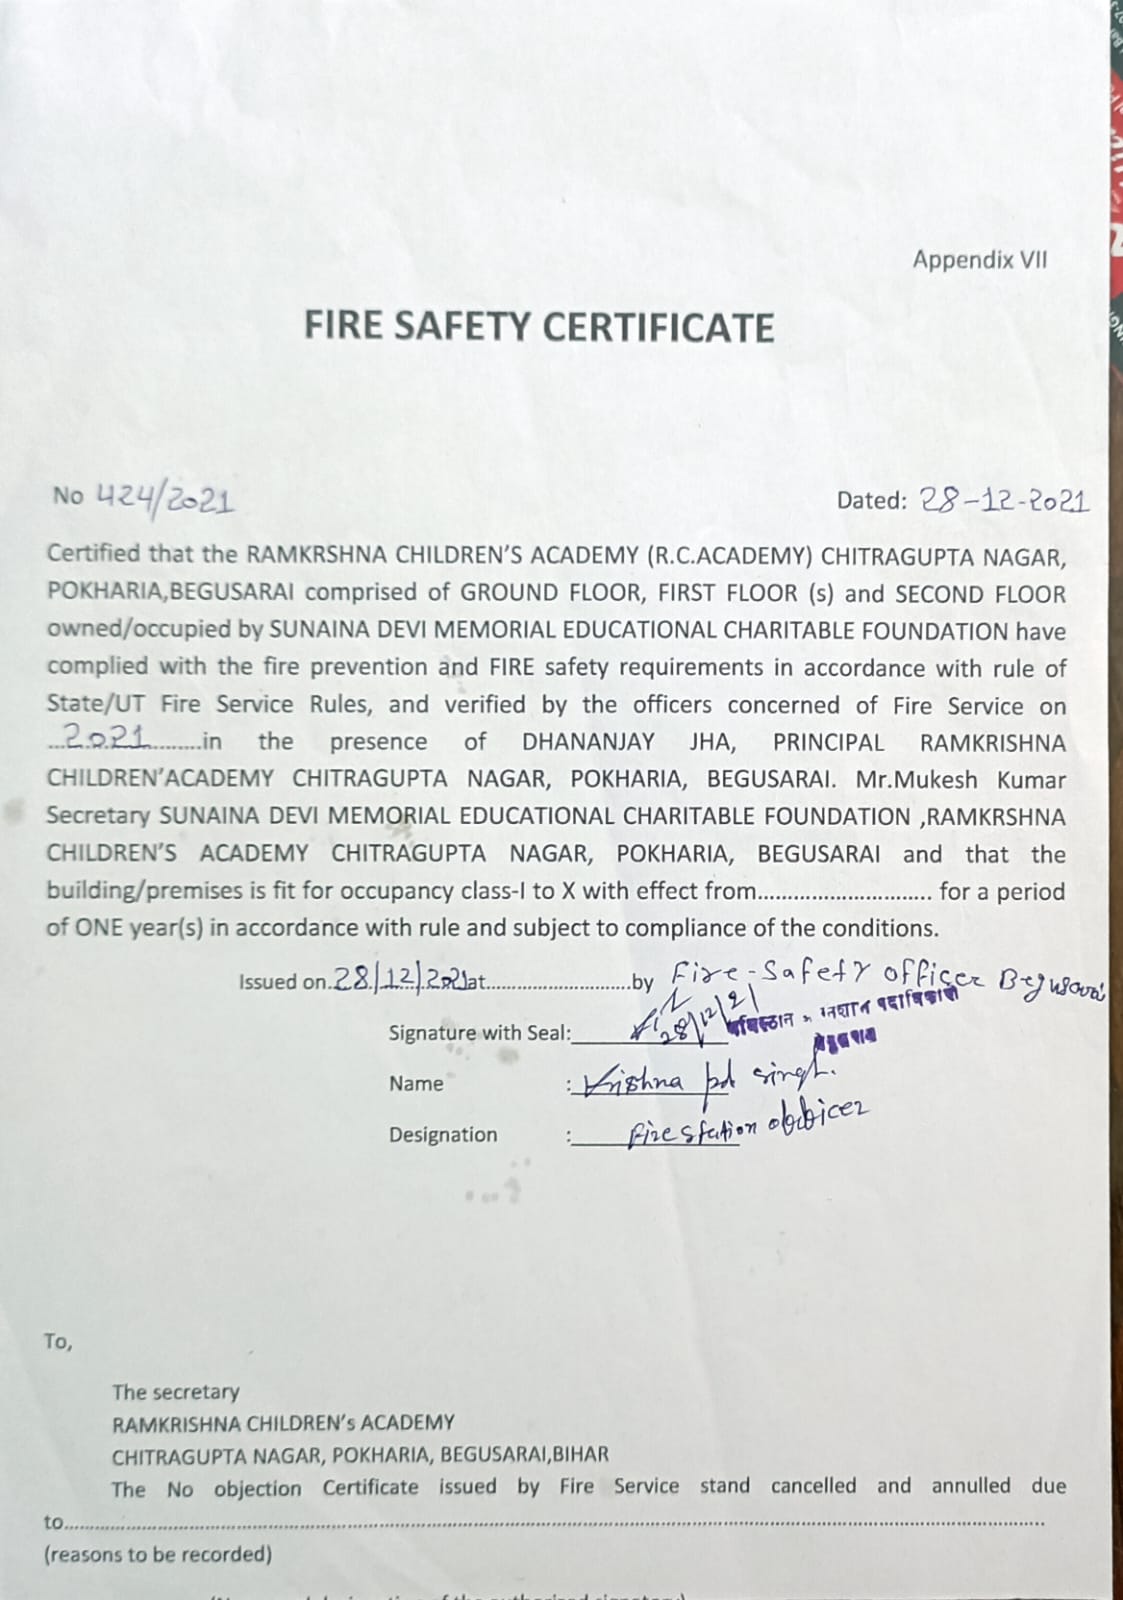 Appendix VII
FIRE SAFETY CERTIFICATE
No 424/2021 Dated: 28-12-2021
Certified that the RAMKRSHNA CHILDREN'S ACADEMY (R.C.ACADEMY) CHITRAGUPTA NAGAR,
POKHARIA,BEGUSARAI comprised of GROUND FLOOR, FIRST FLOOR (s) and SECOND FLOOR
owned/occupied by SUNAINA DEVI MEMORIAL EDUCATIONAL CHARITABLE FOUNDATION have
complied with the fire prevention and FIRE safety requirements in accordance with rule of
State/UT Fire Service Rules, and verified by the officers concerned of Fire Service on
...2021.........in the presence of DHANANJAY JHA, PRINCIPAL RAMKRISHNA
CHILDREN'ACADEMY CHITRAGUPTA NAGAR, POKHARIA, BEGUSARAI. Mr.Mukesh Kumar
Secretary SUNAINA DEVI MEMORIAL EDUCATIONAL CHARITABLE FOUNDATION ,RAMKRSHNA
CHILDREN'S ACADEMY CHITRAGUPTA NAGAR, POKHARIA, BEGUSARAI and that the
building/premises is fit for occupancy class-I to X with effect from............................ for a period
of ONE year(s) in accordance with rule and subject to compliance of the conditions.
Issued on.28/12/2021at..........................by Fire-Safety officer Begusarai
Signature with Seal: 28/12/21 पदाधिकारी
Name : Krishna pd singh.
Designation : Fire station officer
To,
The secretary
RAMKRISHNA CHILDREN's ACADEMY
CHITRAGUPTA NAGAR, POKHARIA, BEGUSARAI,BIHAR
The No objection Certificate issued by Fire Service stand cancelled and annulled due
to......................................................................................................................
(reasons to be recorded)